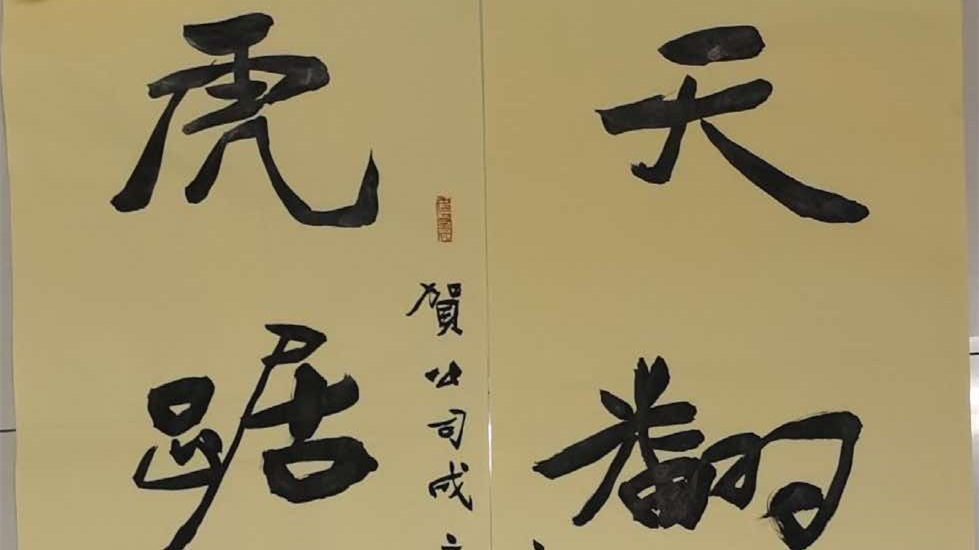 天翻
賀公司成
虎踞